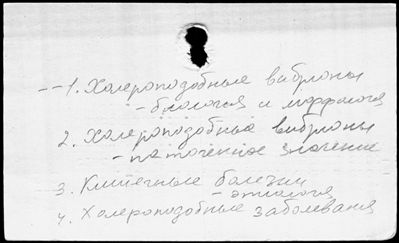 -- 1. Холероподобные вибрионы
- биология и морфология
2. Холероподобные вибрионы
- патогенное значение
3. Кишечные болезни
- этиология
4. Холероподобные заболевания